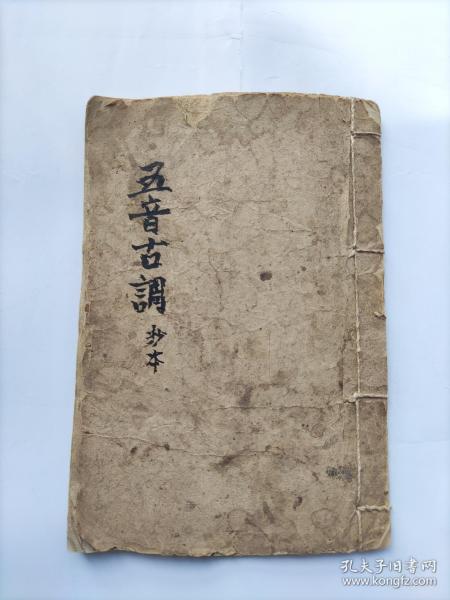 五音古調
抄本
孔夫子旧书网
www.kongfz.com